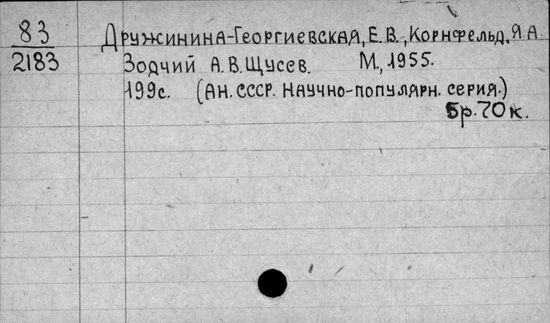 83
2183
Дружинина-Георгиевская, Е.В., Корнфельд, Я.А.
Зодчий А.В. Щусев. М., 1955.
199с. (АН. СССР. Научно-популярн. серия.)
5р. 70к.